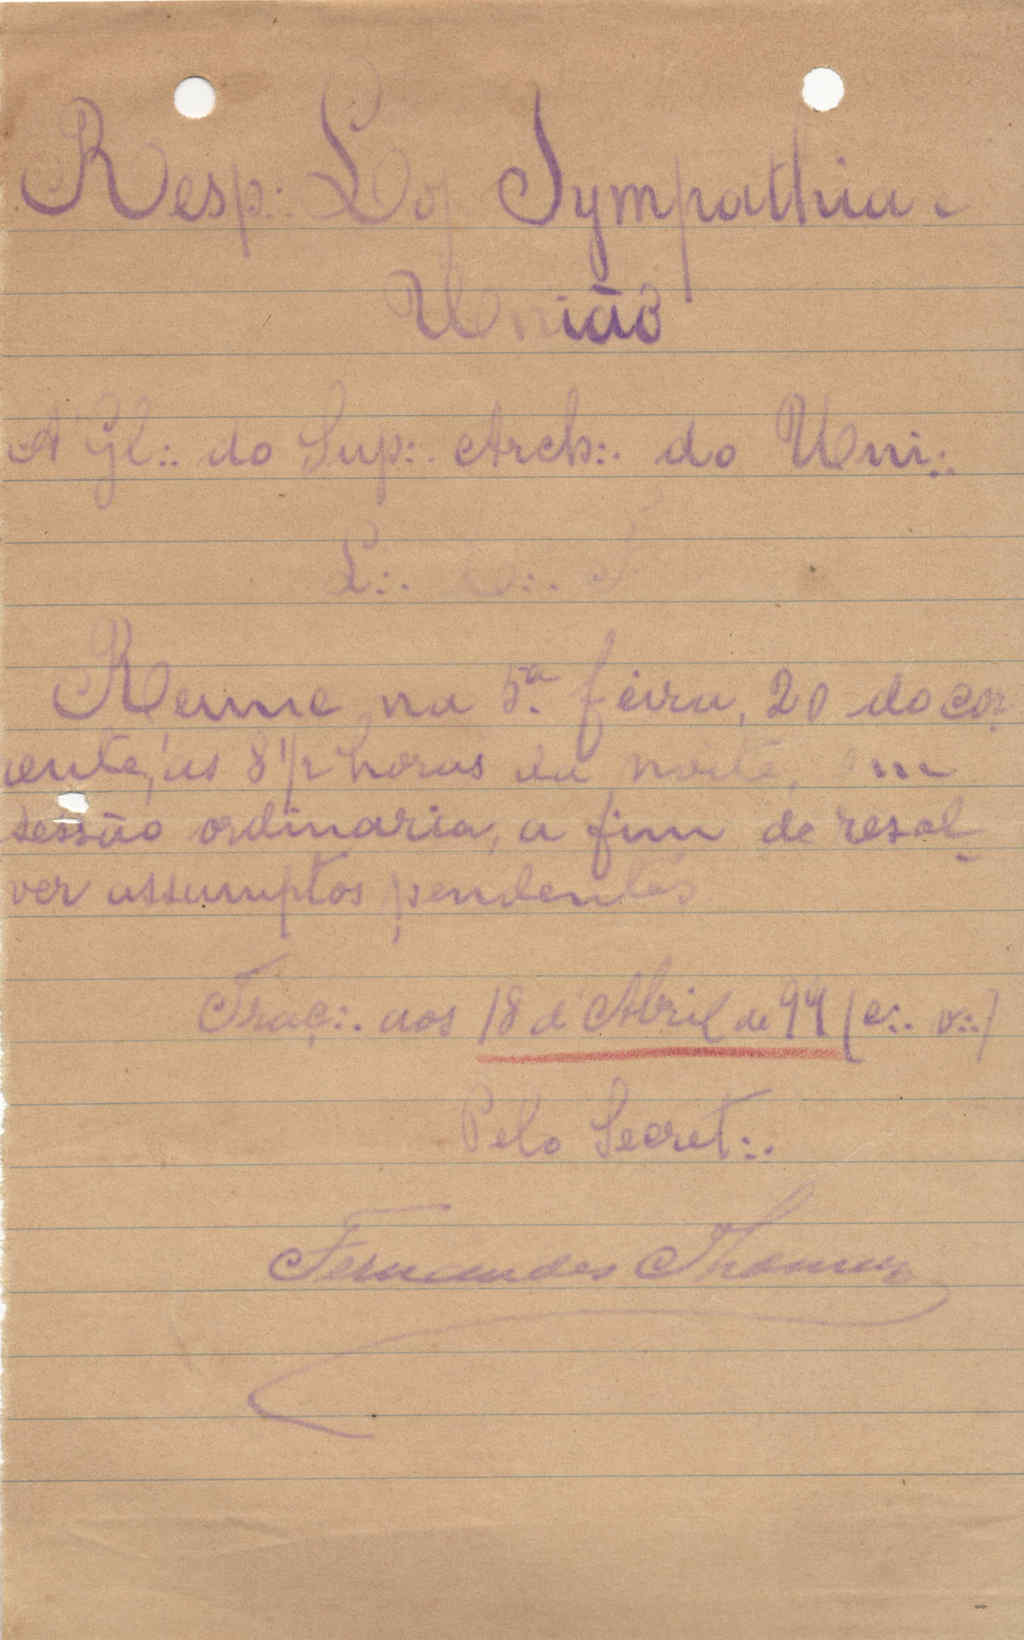 Resp:. Loj Sympathia e
União
A' Gl:. do Sup:. Arch:. do Uni:.
L:.
Reune na 5ª feira, 20 do cor
rente, ás 8 1/2 horas da noite, em
sessão ordinaria, a fim de resol
ver assumptos pendentes
Traç:. aos 18 d'Abril de 94 (e:. v:.)
Pelo Secret:.
Fernandes Thomaz